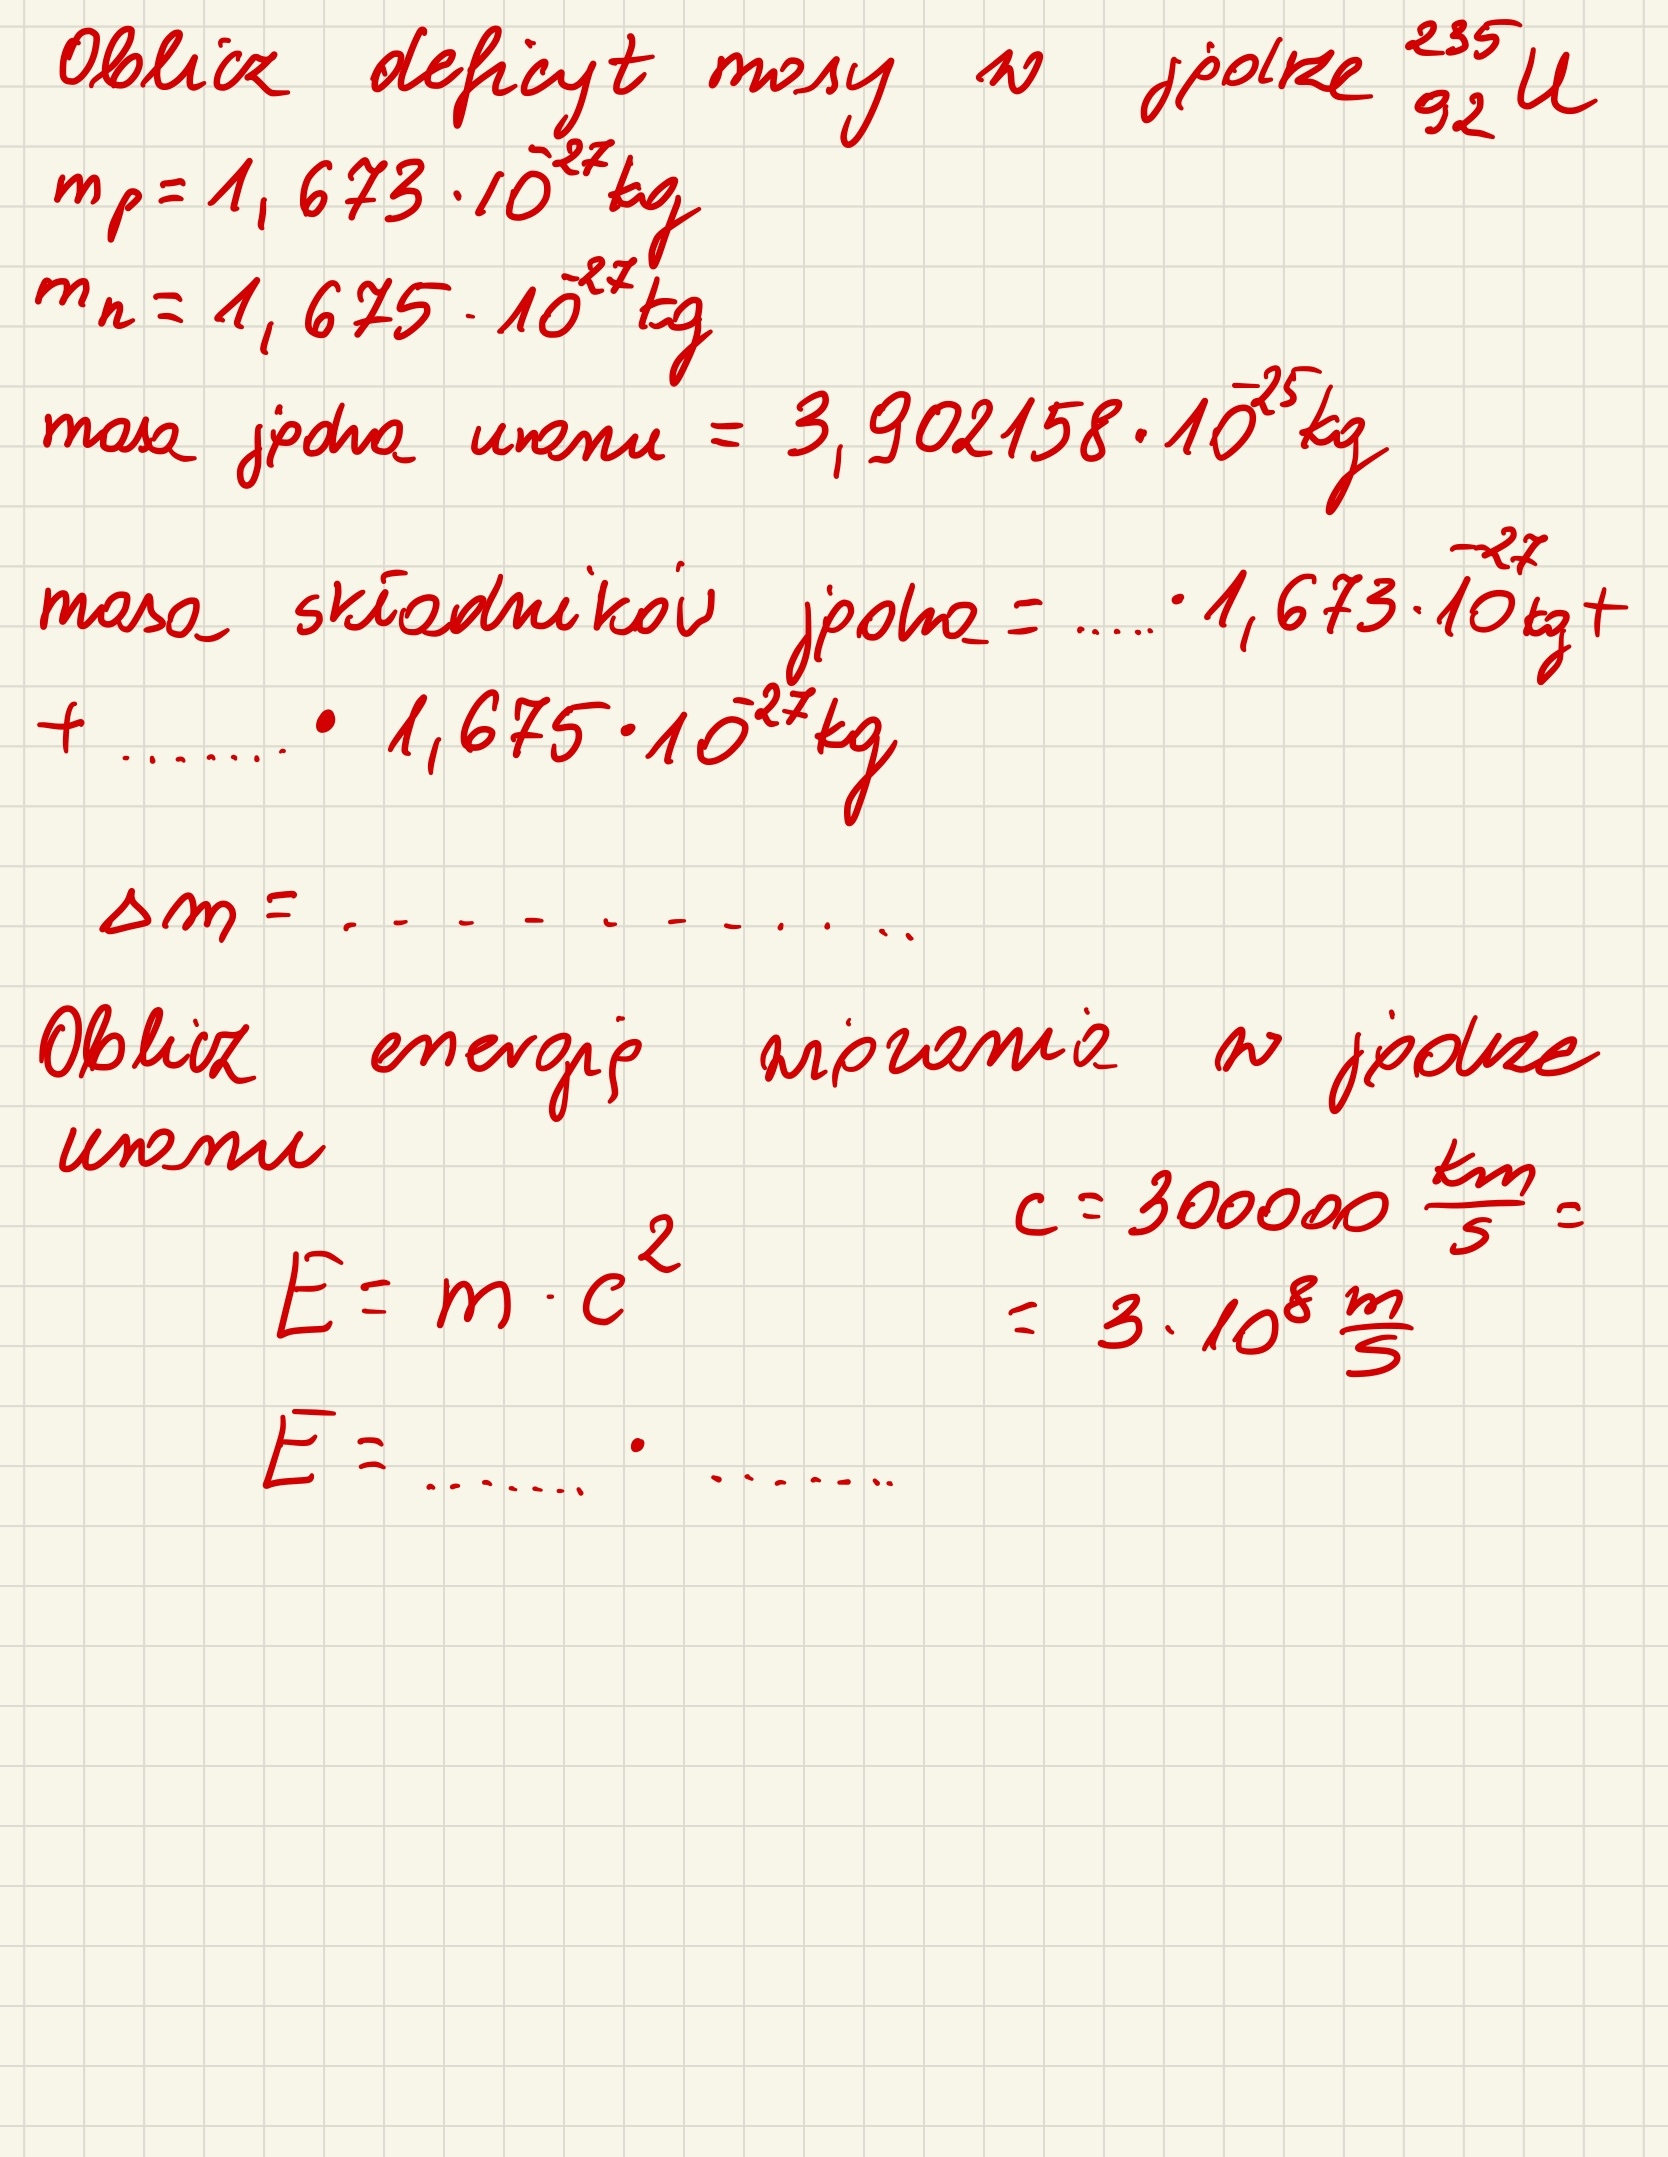 Oblicz deficyt masy w jądrze ²³⁵₉₂U
mₚ = 1,673 · 10⁻²⁷ kg
mₙ = 1,675 · 10⁻²⁷ kg
masa jądra uranu = 3,902158 · 10⁻²⁵ kg
masa składników jądra = ..... · 1,673 · 10⁻²⁷ kg +
+ ....... · 1,675 · 10⁻²⁷ kg
Δm = ...........
Oblicz energię wiązania w jądrze
uranu
c = 300000 km/s =
E = m · c²
= 3 · 10⁸ m/s
E = ...... · .......